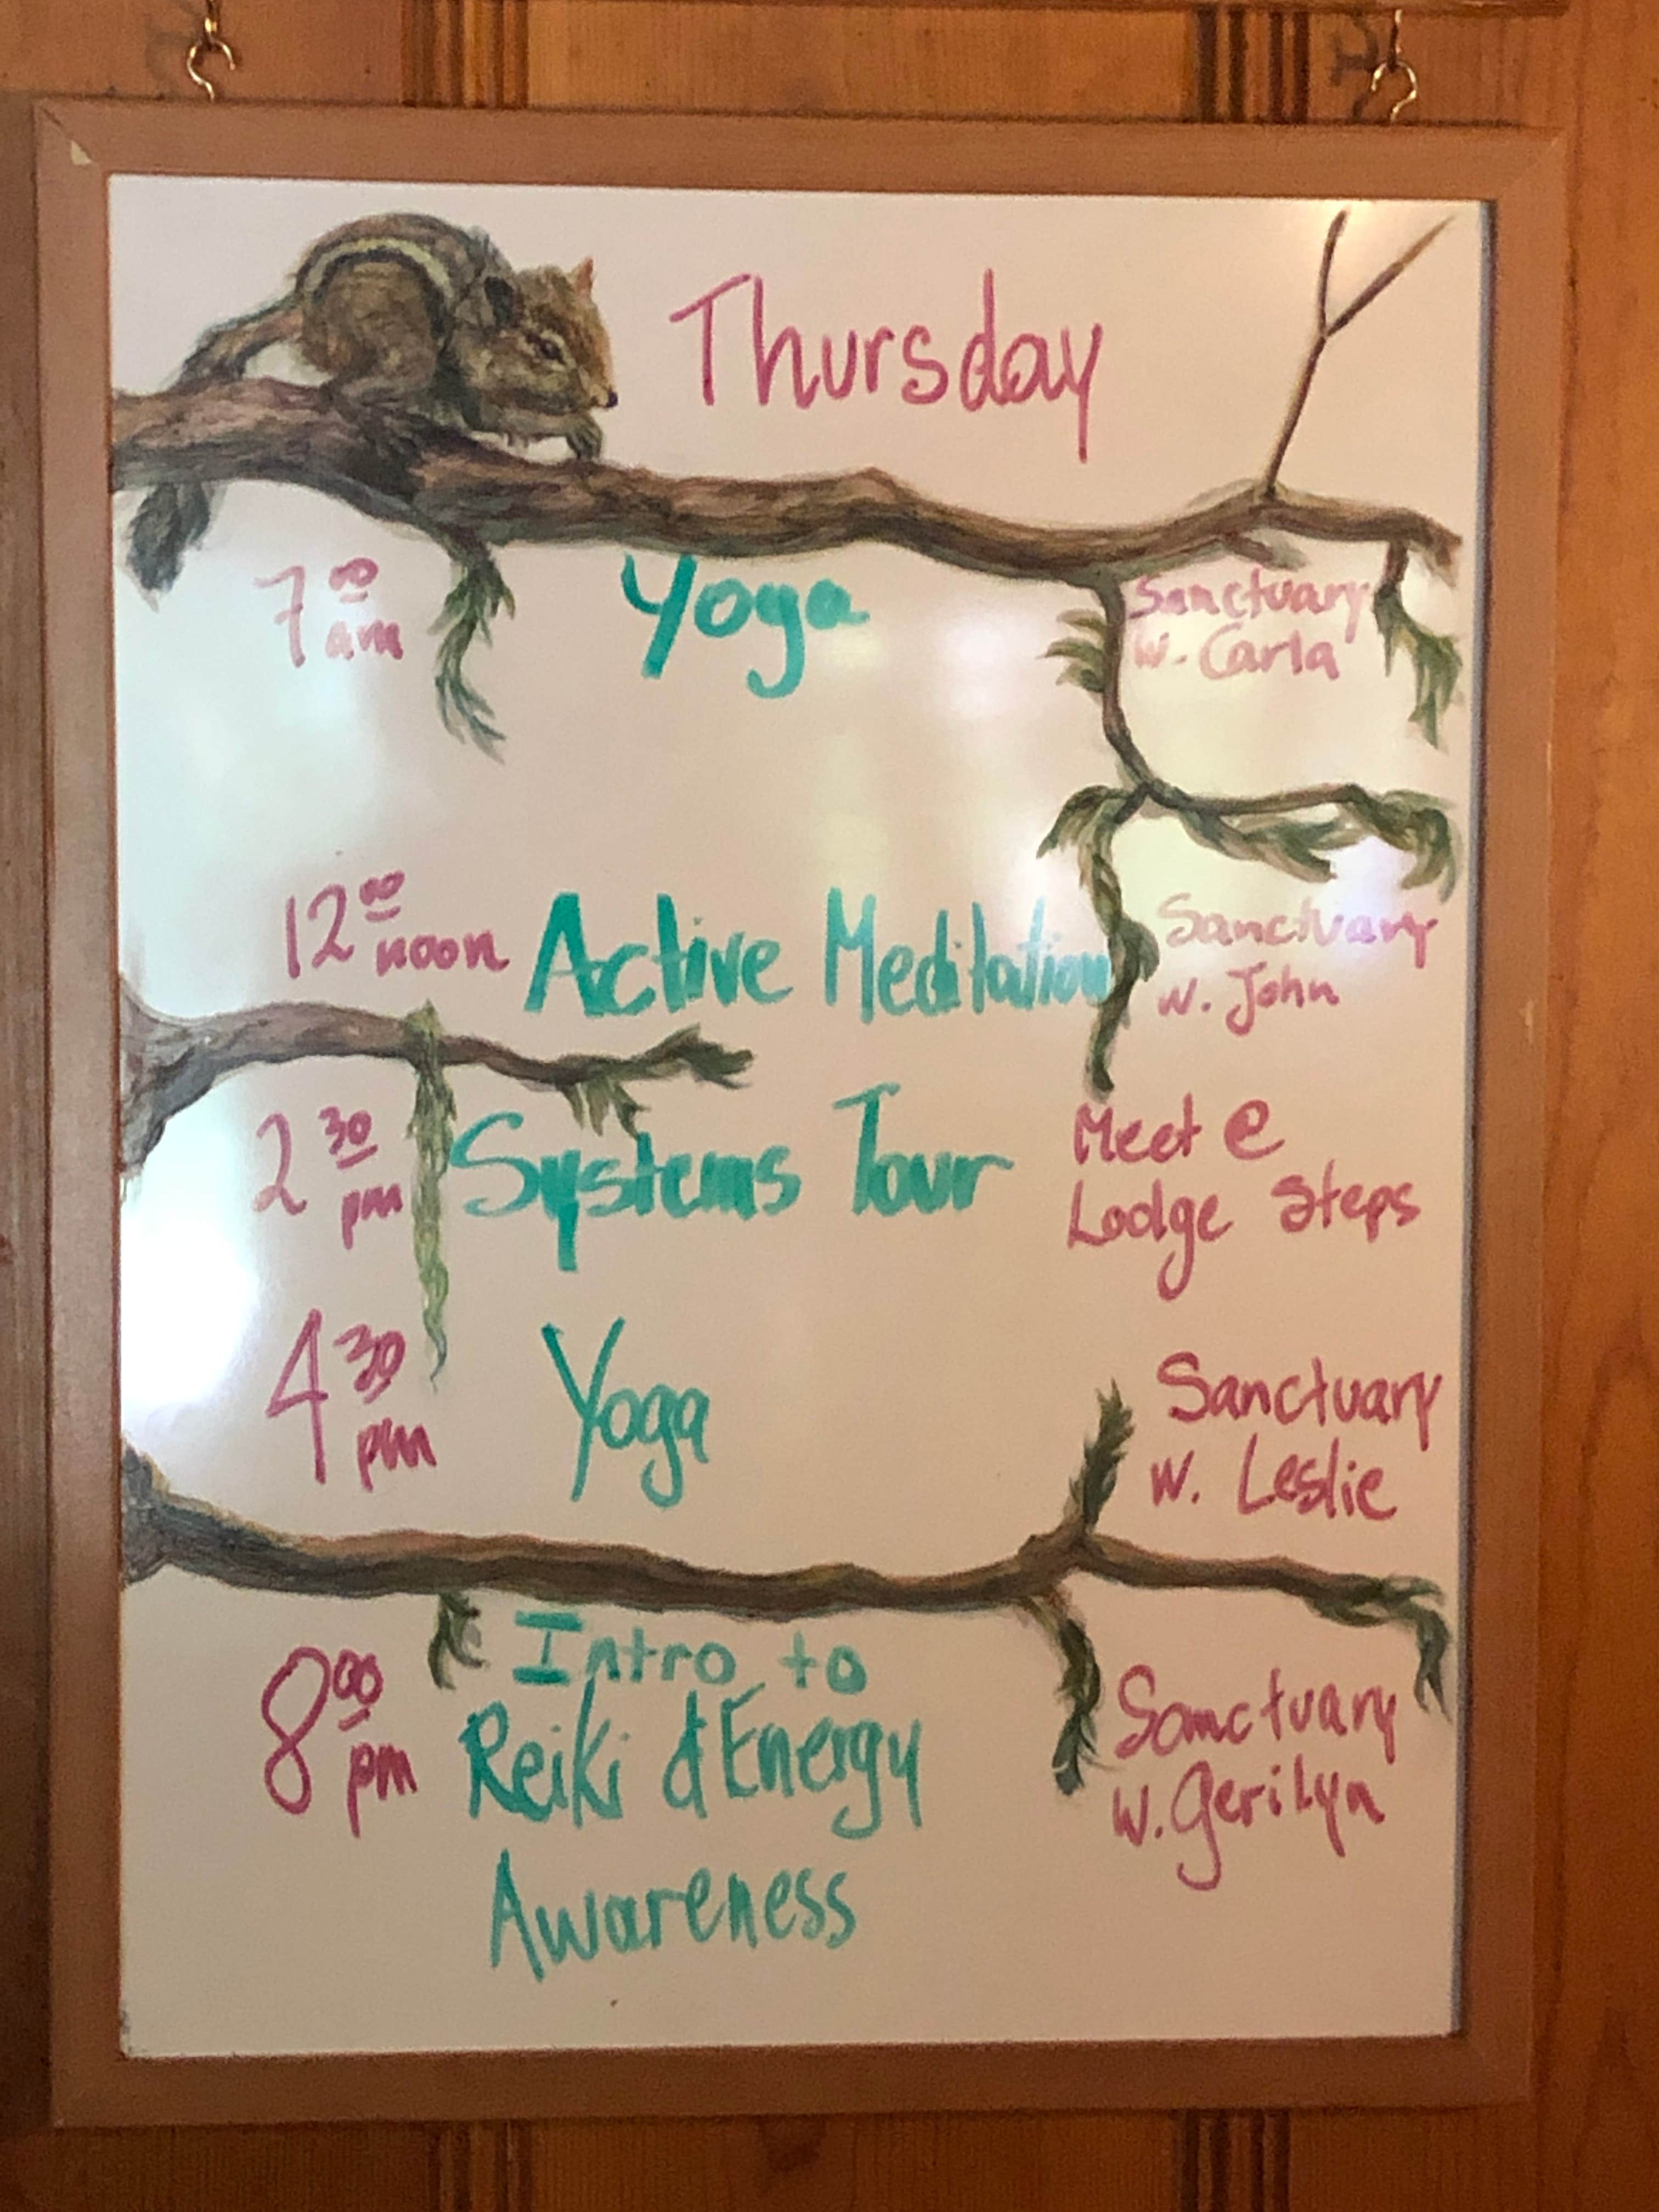 Thursday
7 00 am Yoga Sanctuary
w. Carla
12 00 noon Active Meditation Sanctuary
w. John
2 30 pm Systems Tour Meet @
Lodge Steps
4 30 pm Yoga Sanctuary
w. Leslie
8 00 pm Intro to
Reiki & Energy
Awareness
Sanctuary
w. Gerilyn